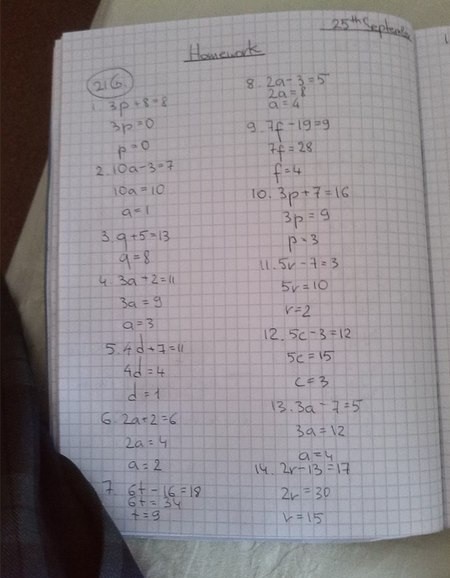 25th September
Homework
21G.
1. 3p+8=8
3p=0
p=0
2. 10a-3=7
10a=10
a=1
3. q+5=13
q=8
4. 3a+2=11
3a=9
a=3
5. 4d+7=11
4d=4
d=1
6. 2a+2=6
2a=4
a=2
7. 6t-16=18
6t=34
t=9
8. 2a-3=5
2a=8
a=4
9. 7f-19=9
7f=28
f=4
10. 3p+7=16
3p=9
p=3
11. 5r-7=3
5r=10
r=2
12. 5c-3=12
5c=15
c=3
13. 3a-7=5
3a=12
a=4
14. 2r-13=17
2r=30
r=15